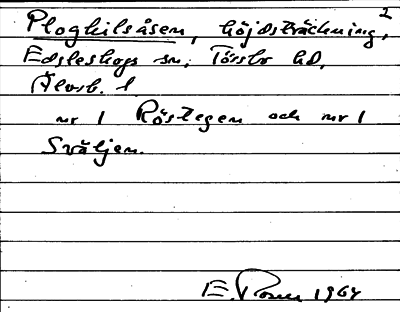 2
Plogkilsåsen, höjdsträckning,
Edsleskogs sn, Tössbo hd,
Älvsb. l.
nr 1 Röstegen och nr 1
Svåljen.
E. Rosen 1964